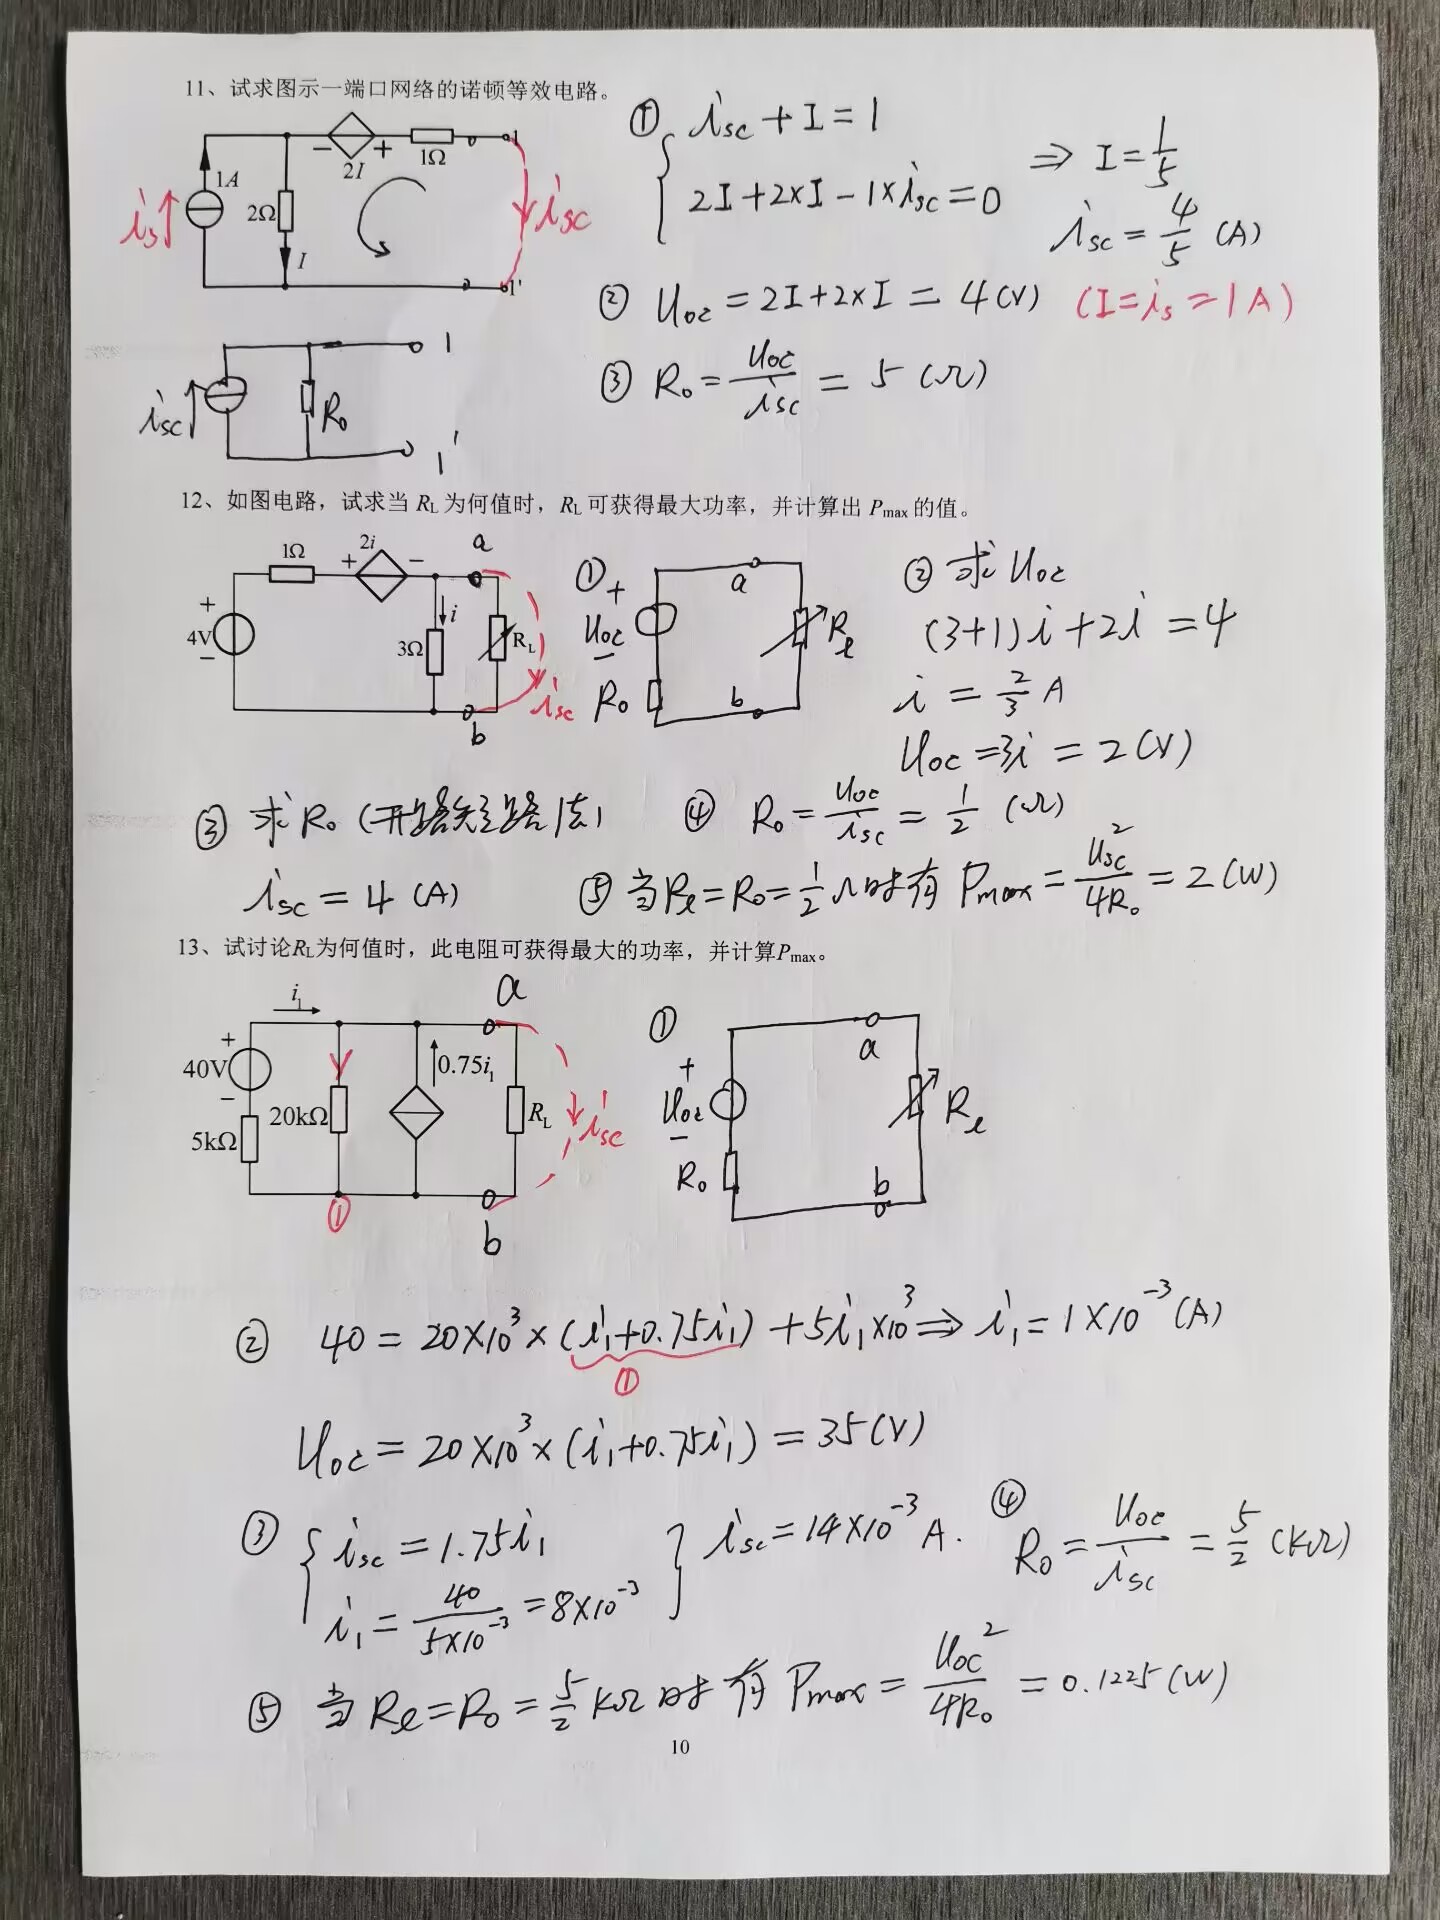 11、试求图示一端口网络的诺顿等效电路。
① isc + I = 1
2I + 2×I − 1×isc = 0
⇒ I = 1/5
isc = 4/5 (A)
1A
is
2Ω
I
− 2I +
1Ω
1
isc
1'
② Uoc = 2I + 2×I = 4 (V) (I = is = 1A)
③ R0 = Uoc/isc = 5 (Ω)
isc
R0
1
1'
12、如图电路，试求当 RL 为何值时，RL 可获得最大功率，并计算出 Pmax 的值。
1Ω
+ 2i −
a
+
4V
−
i
3Ω
RL
isc
b
①
+
Uoc
−
R0
a
b
Rl
② 求 Uoc
(3+1)i + 2i = 4
i = 2/3 A
Uoc = 3i = 2 (V)
③ 求 R0 (开路短路法)
isc = 4 (A)
④ R0 = Uoc/isc = 1/2 (Ω)
⑤ 当 Rl = R0 = 1/2 Ω 时有 Pmax = Usc²/4R0 = 2 (W)
13、试讨论RL为何值时，此电阻可获得最大的功率，并计算Pmax。
i1
+
40V
−
5kΩ
20kΩ
①
0.75i1
a
RL
isc
b
①
+
Uoc
−
R0
a
b
Rl
② 40 = 20×10³×(i1+0.75i1) + 5i1×10³ ⇒ i1 = 1×10⁻³ (A)
①
Uoc = 20×10³×(i1+0.75i1) = 35 (V)
③ isc = 1.75i1
i1 = 40/5×10⁻³ = 8×10⁻³
isc = 14×10⁻³ A.
④
R0 = Uoc/isc = 5/2 (KΩ)
⑤ 当 Rl = R0 = 5/2 KΩ 时有 Pmax = Uoc²/4R0 = 0.1225 (W)
10